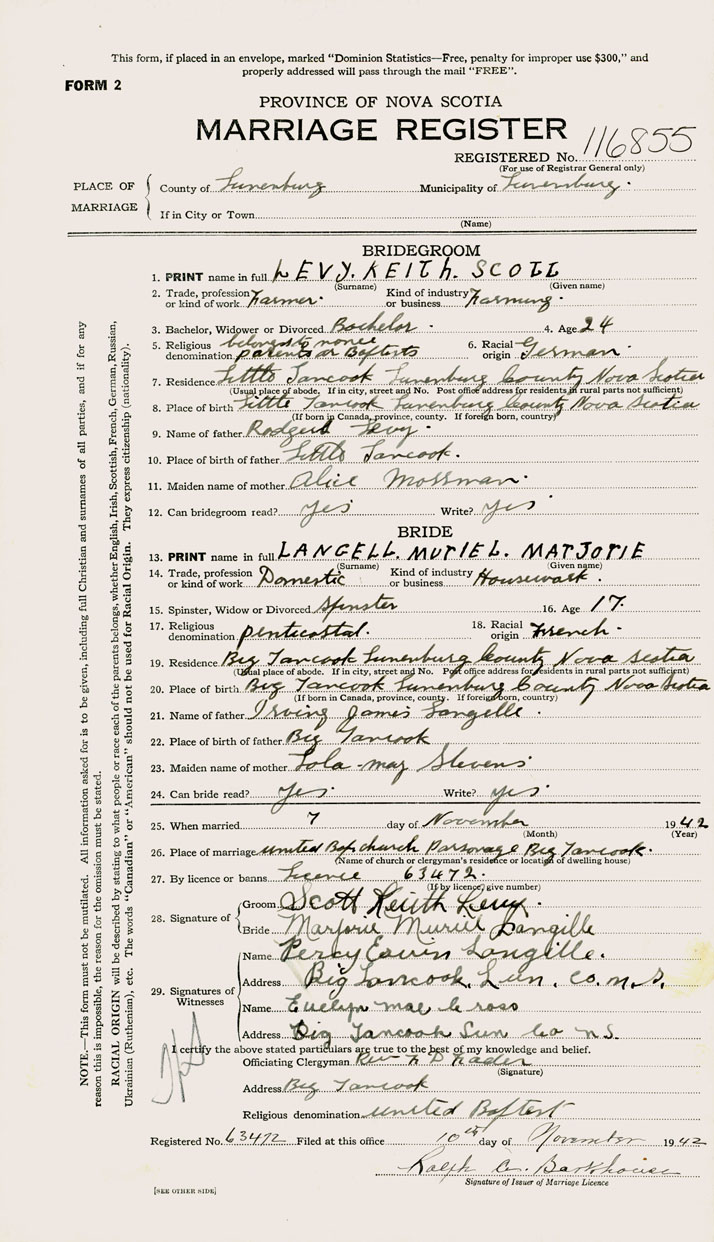 This form, if placed in an envelope, marked "Dominion Statistics—Free, penalty for improper use $300," and
properly addressed will pass through the mail "FREE".
FORM 2
PROVINCE OF NOVA SCOTIA
MARRIAGE REGISTER
REGISTERED No. 116855
(For use of Registrar General only)
PLACE OF MARRIAGE
County of Lunenburg Municipality of Lunenburg.
If in City or Town
(Name)
BRIDEGROOM
1. PRINT name in full LEVY. KEITH. SCOTT
(Surname) (Given name)
2. Trade, profession or kind of work Farmer. Kind of industry or business Farming.
3. Bachelor, Widower or Divorced Bachelor. 4. Age 24
5. Religious denomination belongs to none parents or Baptists 6. Racial origin German.
7. Residence Little Tancook Lunenburg County Nova Scotia
(Usual place of abode. If in city, street and No. Post office address for residents in rural parts not sufficient)
8. Place of birth Little Tancook Lunenburg County Nova Scotia
(If born in Canada, province, county. If foreign born, country)
9. Name of father Rodger Levy.
10. Place of birth of father Little Tancook.
11. Maiden name of mother Alice Mossman.
12. Can bridegroom read? yes Write? yes
BRIDE
13. PRINT name in full LANGELL. MURIEL. MARJORIE
(Surname) (Given name)
14. Trade, profession or kind of work Domestic Kind of industry or business Housework.
15. Spinster, Widow or Divorced Spinster 16. Age 17.
17. Religious denomination Pentecostal. 18. Racial origin French.
19. Residence Big Tancook Lunenburg County Nova Scotia
(Usual place of abode. If in city, street and No. Post office address for residents in rural parts not sufficient)
20. Place of birth Big Tancook Lunenburg County Nova Scotia
(If born in Canada, province, county. If foreign born, country)
21. Name of father Irving James Langille.
22. Place of birth of father Big Tancook
23. Maiden name of mother Lola may Stevens
24. Can bride read? Yes. Write? yes.
25. When married 7 day of November 1942
(Month) (Year)
26. Place of marriage united Bap church Parsonage Big Tancook.
(Name of church or clergyman's residence or location of dwelling house)
27. By licence or banns licence 63472.
(If by licence, give number)
28. Signature of
Groom Scott Keith Levy.
Bride Marjorie Muriel Langille
29. Signatures of Witnesses
Name Percy Langille.
Address Big Tancook, Lun. Co. n.s.
Name Evelyn mae Cross
Address Big Tancook Lun Co N.S.
I certify the above stated particulars are true to the best of my knowledge and belief.
Officiating Clergyman Rev
(Signature)
Address Big Tancook
Religious denomination united Baptist
Registered No. 63472 Filed at this office 10th day of November 1942
Ralph Barkhouse
Signature of Issuer of Marriage Licence
[SEE OTHER SIDE]
NOTE.—This form must not be mutilated. All information asked for is to be given, including full Christian and surnames of all parties, and if for any
reason this is impossible, the reason for the omission must be stated.
RACIAL ORIGIN will be described by stating to what people or race each of the parents belongs, whether English, Irish, Scottish, French, German, Russian,
Ukrainian (Ruthenian), etc. The words "Canadian" or "American" should not be used for Racial Origin. They express citizenship (nationality).